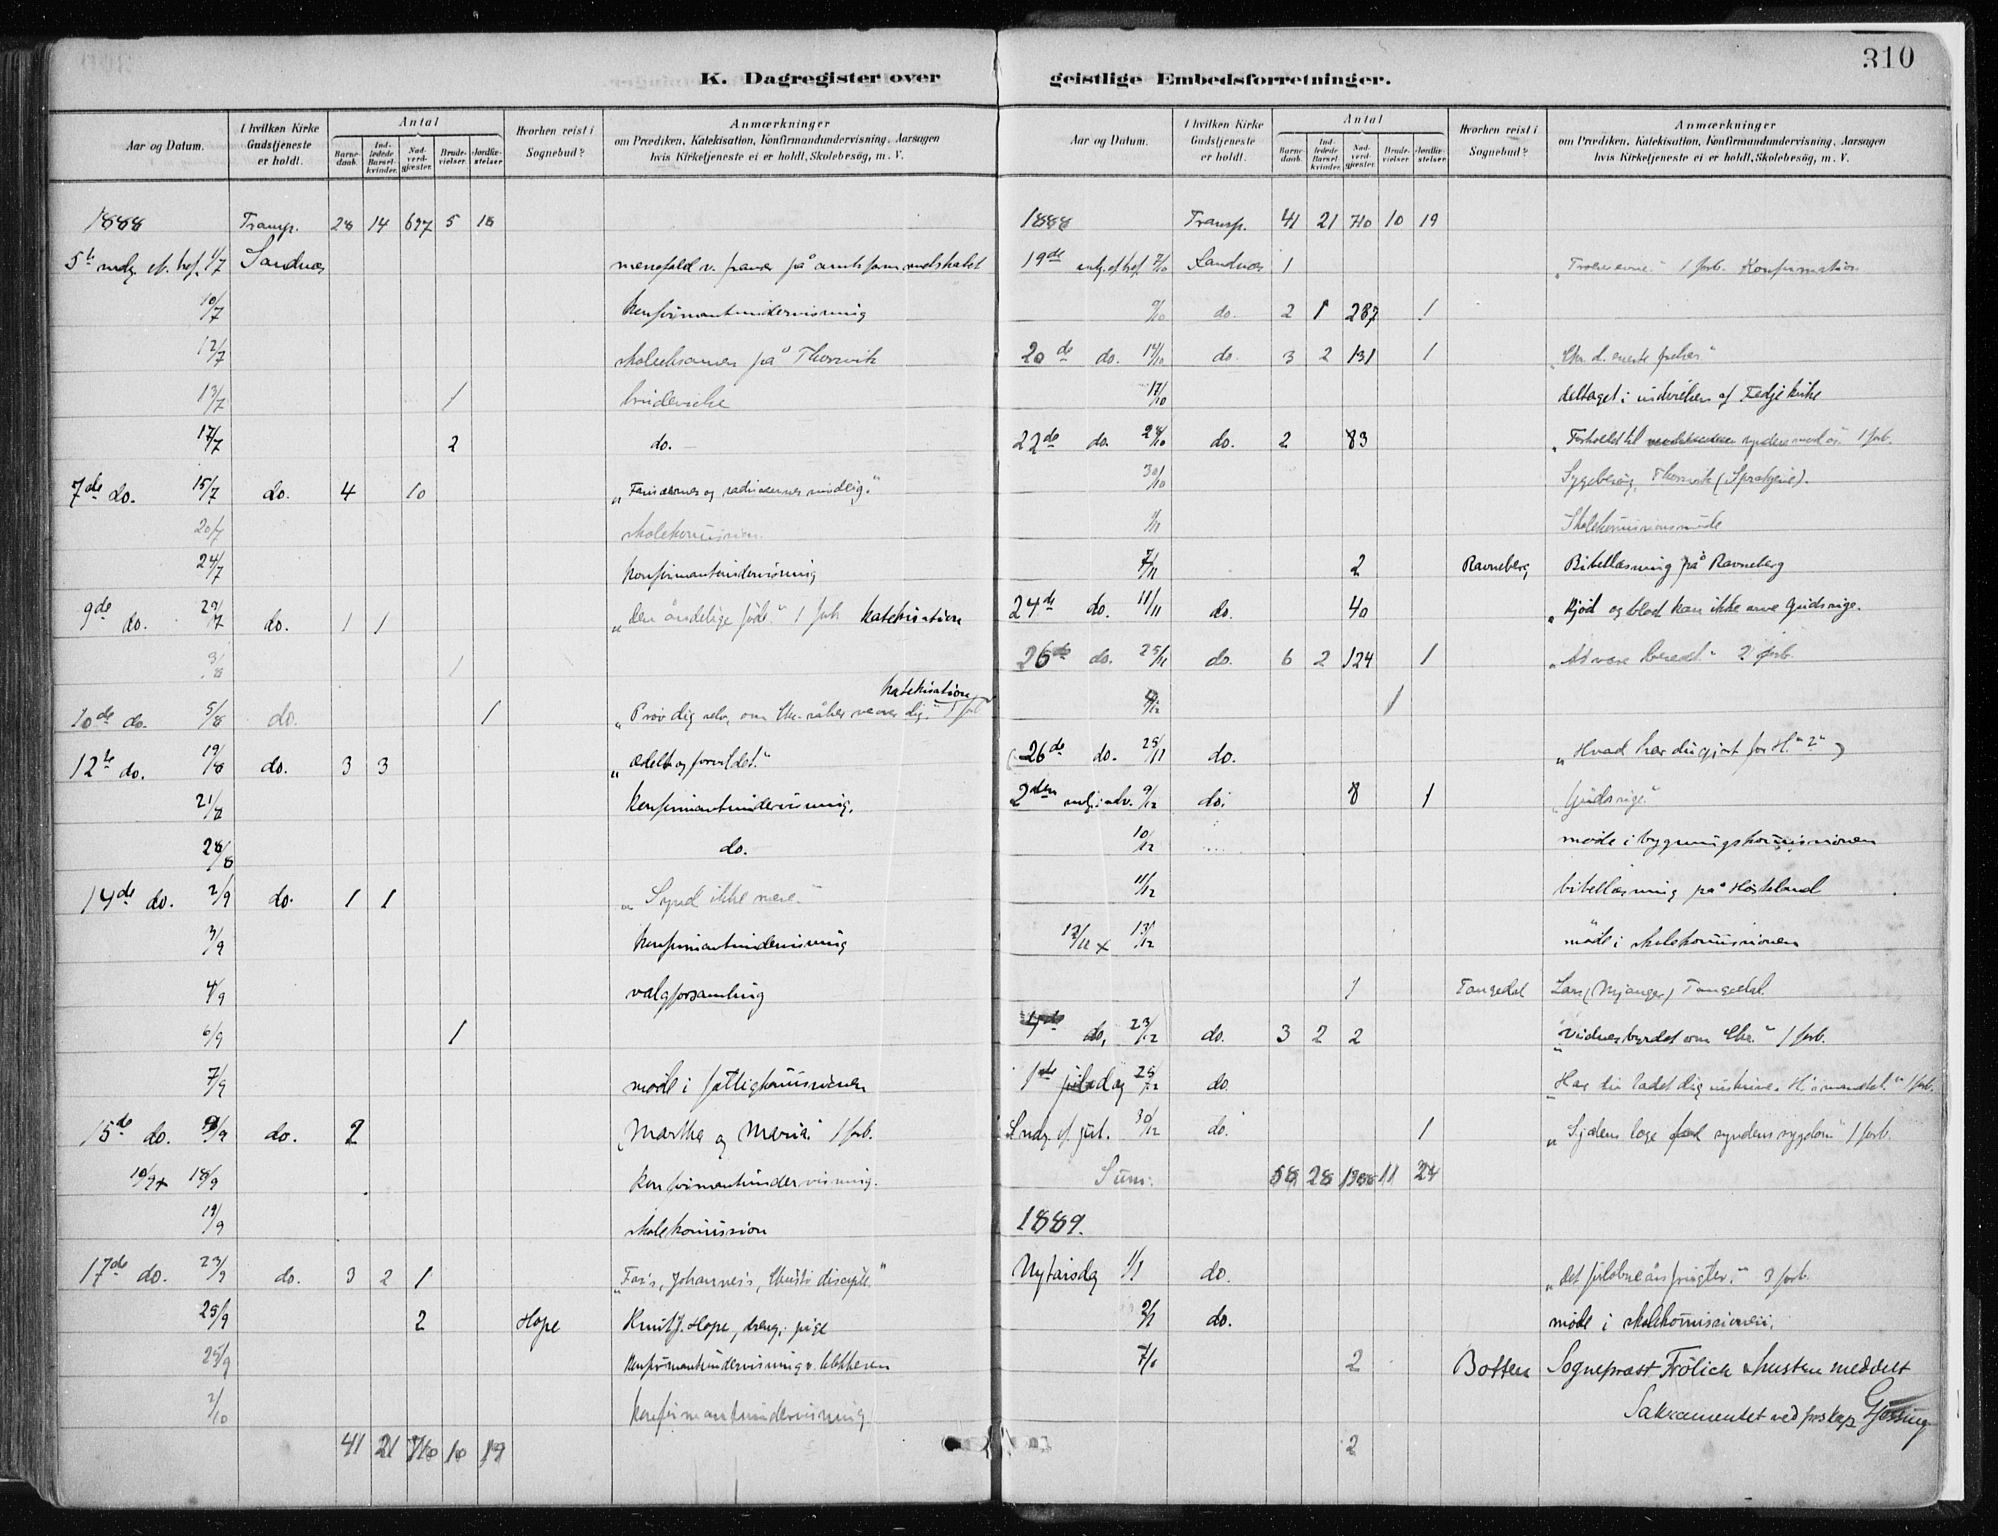 310
K. Dagregister over
Aar og Datum. I hvilken Kirke Gudstjeneste er holdt. Antal Barnedaab. Indledede Barselkvinder. Nadverdgjester. Brudevielser. Jordfæstelser. Hvorhen reist i Sognebud? Anmærkninger om Prædiken, Katekisation, Konfirmandundervisning, Aarsagen hvis Kirketjeneste ei er holdt, Skolebesøg, m. V.
1888 Transp. 28 14 697 5 18
5te sndg. ef. tref. 1/7 Sandnes menefald v. fravær på amtsformandskabet
10/7 konfirmantundervisning
12/7 skoleeksamen på Thorsvik
13/7 1 brudevielse
17/7 2 do.
7de do. 15/7 do. 4 10 „Farisæernes og saducæernes surdeig.“
20/7 skolekommission
24/7 konfirmantundervisning
9de do. 29/7 do. 1 1 „Den åndelige føde.“ 1 forb. katekisation
3/8 1
katekisation
10de do. 5/8 do. 1 „Prøv dig selv, om Chr. råber ve over dig.“ 1 forb.
12te do. 19/8 do. 3 3 „ædelt og forvildet.“
21/8 konfirmantundervisning.
28/8 do.
14de do. 2/9 do. 1 1 „Synd ikke mere.“
3/9 konfirmantundervisning
4/9 valgforsamling
6/9 1
7/9 møde i fattigkommissionen
15de do. 9/9 do. 2 Martha og Maria. 1 forb.
10/9 + 18/9 konfirmantundervisning.
19/9 skolekommission
17de do. 23/9 do. 3 2 1 „Faris, Johannes's, Christi discipel.“
25/9 2 Hope Knut J. Hope, dreng, pige
25/9 konfirmantundervisning v. klokkeren
2/10 konfirmantundervisning.
41 21 710 10 19
geistlige Embedsforretninger.
Aar og Datum. I hvilken Kirke Gudstjeneste er holdt. Antal Barnedaab. Indledede Barselkvinder. Nadverdgjester. Brudevielser. Jordfæstelser. Hvorhen reist i Sognebud? Anmærkninger om Prædiken, Katekisation, Konfirmandundervisning, Aarsagen hvis Kirketjeneste ei er holdt, Skolebesøg, m. V.
1888 Transp. 41 21 710 10 19
19de sndg. ef. tref. 7/10 Sandnes 1 1 forb. Konfirmation
9/10 do. 2 1 287 1
20de do. 14/10 do. 3 2 131 1 „Chr. d. eneste frelser“
17/10 deltaget i indvielsen af Fedje kirke
22de do. 28/10 do. 2 83 „Forholdet til syndere mod os.“ 1 forb.
30/10 Sygebesøg, Thorsvik
1/11 Skolekommissionsmøde
7/11 2 Ravneberg Bibellæsning på Ravneberg
24de do. 11/11 do. 40 „Kjød og blod kan ikke arve Guds rige.
26de do. 25/11 do. 6 2 124 1 „At være beredt.“ 2 forb.
/12 1
(26de do. 25/11 do. „Hvad har du gjort for H.“ 2“)
2den sndg. i adv. 9/12 do. 8 1 „Guds rige.“
10/12 møde i bygningskommissionen
11/12 bibellæsning på Høsteland
12/12 + 13/12 møde i skolekommissionen
1 Tangedal Lars (Mjanger) Tangedal.
4de do. 23/12 do. 3 2 2 „Vidnesbyrdet om Chr.“ 1 forb.
1ste juledag 25/12 do. „Har du ladet dig indskrive i H's mandtal.“ 1 forb.
Sndg. ef. jul. 30/12 do. 1 „Sjælens læge syndens sygdom“ 1 forb.
Sum: 58 28 11 24
1889.
Nytårsdag 1/1 do. „det forløbne års frugter.“ 3 forb.
2/1 do. møde i skolekommissionen.
7/1 2 Botten Sognepræst Frölich & hustru meddelt
Sakramentet ved
2